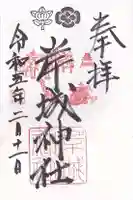 奉拝
岸城神社
令和五年二月十二日